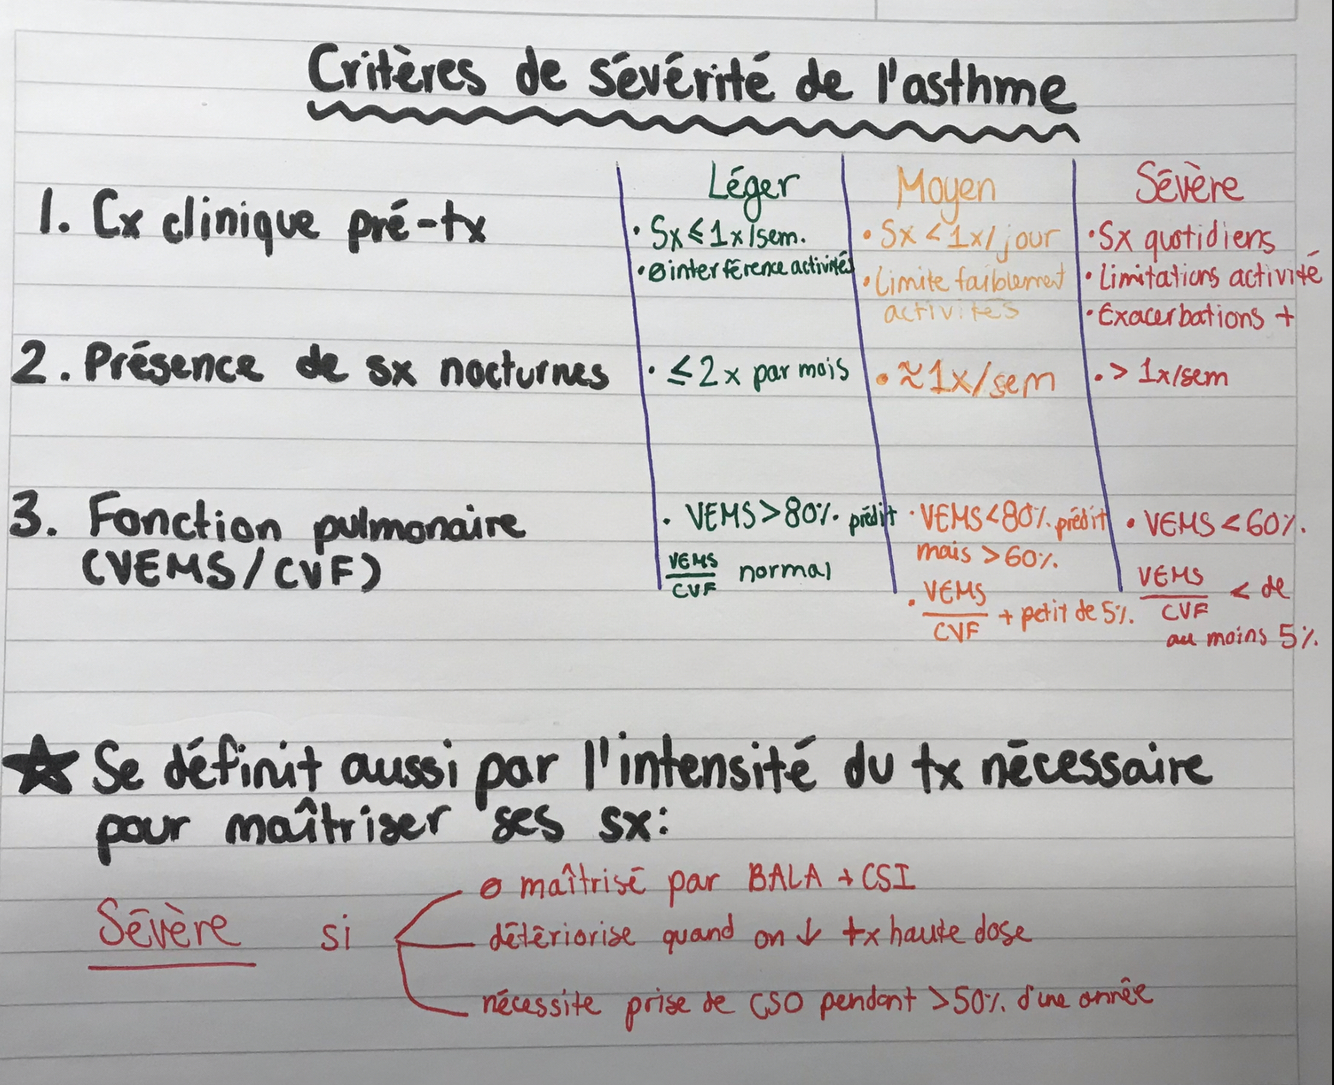 Critères de sévérité de l'asthme
Léger
Moyen
Sévère
1. Cx clinique pré-tx
• Sx ≤ 1x/sem.
• ø interférence activités
• Sx < 1x/jour
• Limite faiblement
activités
• Sx quotidiens
• Limitations activité
• Exacerbations +
2. Présence de sx nocturnes
• ≤ 2x par mois
• ≈ 1x/sem
• > 1x/sem
3. Fonction pulmonaire
(VEMS/CVF)
• VEMS > 80% prédit
VEMS/CVF normal
• VEMS < 80% prédit
mais > 60%.
• VEMS/CVF + petit de 5%.
• VEMS < 60%.
VEMS/CVF < de
au moins 5%.
★ Se définit aussi par l'intensité du tx nécessaire
pour maîtriser ses sx:
Sévère si
ø maîtrisé par BALA + CSI
détériorise quand on ↓ tx haute dose
nécessite prise de CSO pendant >50% d'une année